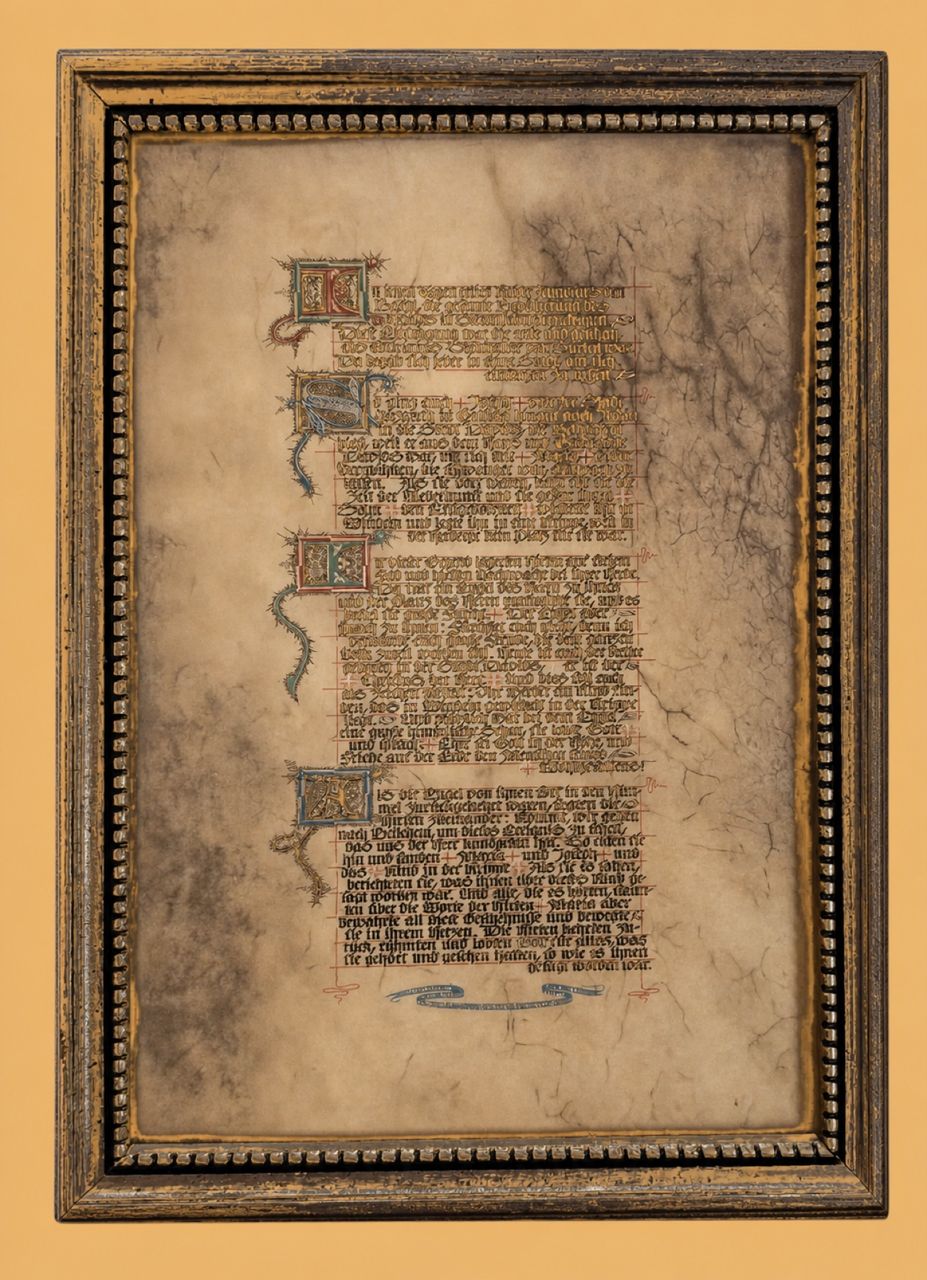 jenen Tagen erließ Kaiser Augustus den
Befehl, die gesamte Bevölkerung des
in Steuerlisten einzutragen.
Diese Aufzeichnung war die erste und geschah,
als Statthalter von Syrien war.
Da begab sich jeder in seine Stadt, um sich
eintragen zu lassen.
ging auch + Joseph + von der Stadt
Nazareth in Galiläa hinauf nach Judäa
in die Stadt Davids, die Bethlehem
hieß, weil er aus dem Haus und Geschlechte
Davids war, um sich mit + Maria + seiner
Vermählten, die schwanger war,
lassen. Als sie dort waren, kam für sie die
Zeit der Niederkunft und sie gebar ihren +
Sohn + den Erstgeborenen + wickelte ihn in
Windeln und legte ihn in eine Krippe, weil in
der Herberge kein Platz für sie war.
dieser Gegend lagerten Hirten auf freiem
Feld und hielten Nachtwache bei ihrer Herde.
Da trat ein Engel des Herrn zu ihnen
und der Glanz des Herrn umstrahlte sie, und es
befiel sie große Furcht. Der Engel aber
sprach zu ihnen: Fürchtet euch nicht, denn ich
verkünde euch große Freude, die dem ganzen
Volke zuteil werden soll. Heute ist euch der Retter
geboren in der Stadt Davids, er ist der
Christus der Herr. + Und dies soll euch
als Zeichen dienen: Ihr werdet ein Kind fin-
den, das in Windeln gewickelt in der Krippe
liegt. + Und plötzlich war bei dem Engel
eine große himmlische Schar, sie lobte Gott
und sprach: + Ehre sei Gott in der Höhe, und
Friede auf der Erde den Menschen seines
+ Wohlgefallens!
Als die Engel von ihnen fort in den Him-
mel zurückgekehrt waren, sagten die
Hirten zueinander: Kommt, wir gehen
nach Betlehem, um dieses Ereignis zu sehen,
das uns der Herr kundgetan hat. So eilten sie
hin und fanden + Maria + und Joseph + und
das + Kind in der Krippe. Als sie es sahen,
berichteten sie, was ihnen über dieses Kind ge-
sagt worden war. Und alle, die es hörten, staun-
ten über die Worte der Hirten. + Maria aber
bewahrte all diese Geschehnisse und bewegte
sie in ihrem Herzen. Die Hirten kehrten zu-
rück, rühmten und lobten Gott für alles, was
sie gehört und gesehen hatten, so wie es ihnen
gesagt worden war.